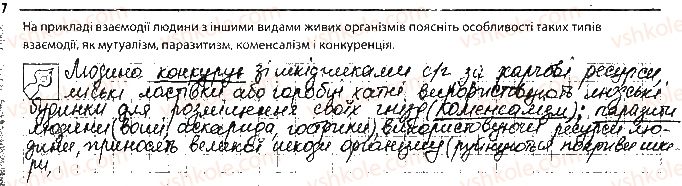 7
На прикладі взаємодії людини з іншими видами живих організмів поясніть особливості таких типів
взаємодії, як мутуалізм, паразитизм, коменсалізм і конкуренція.
Людина конкурує зі шкідниками с/г за харчові ресурси
міські ластівки або горобці хатні використовують людські
будинки для розміщення своїх гнізд (коменсалізм); паразити
людини (воші, аскарида, гострики), використовуючи ресурси лю-
дини, приносять великої шкоди організму (руйнуються покриви шкі-
ри,